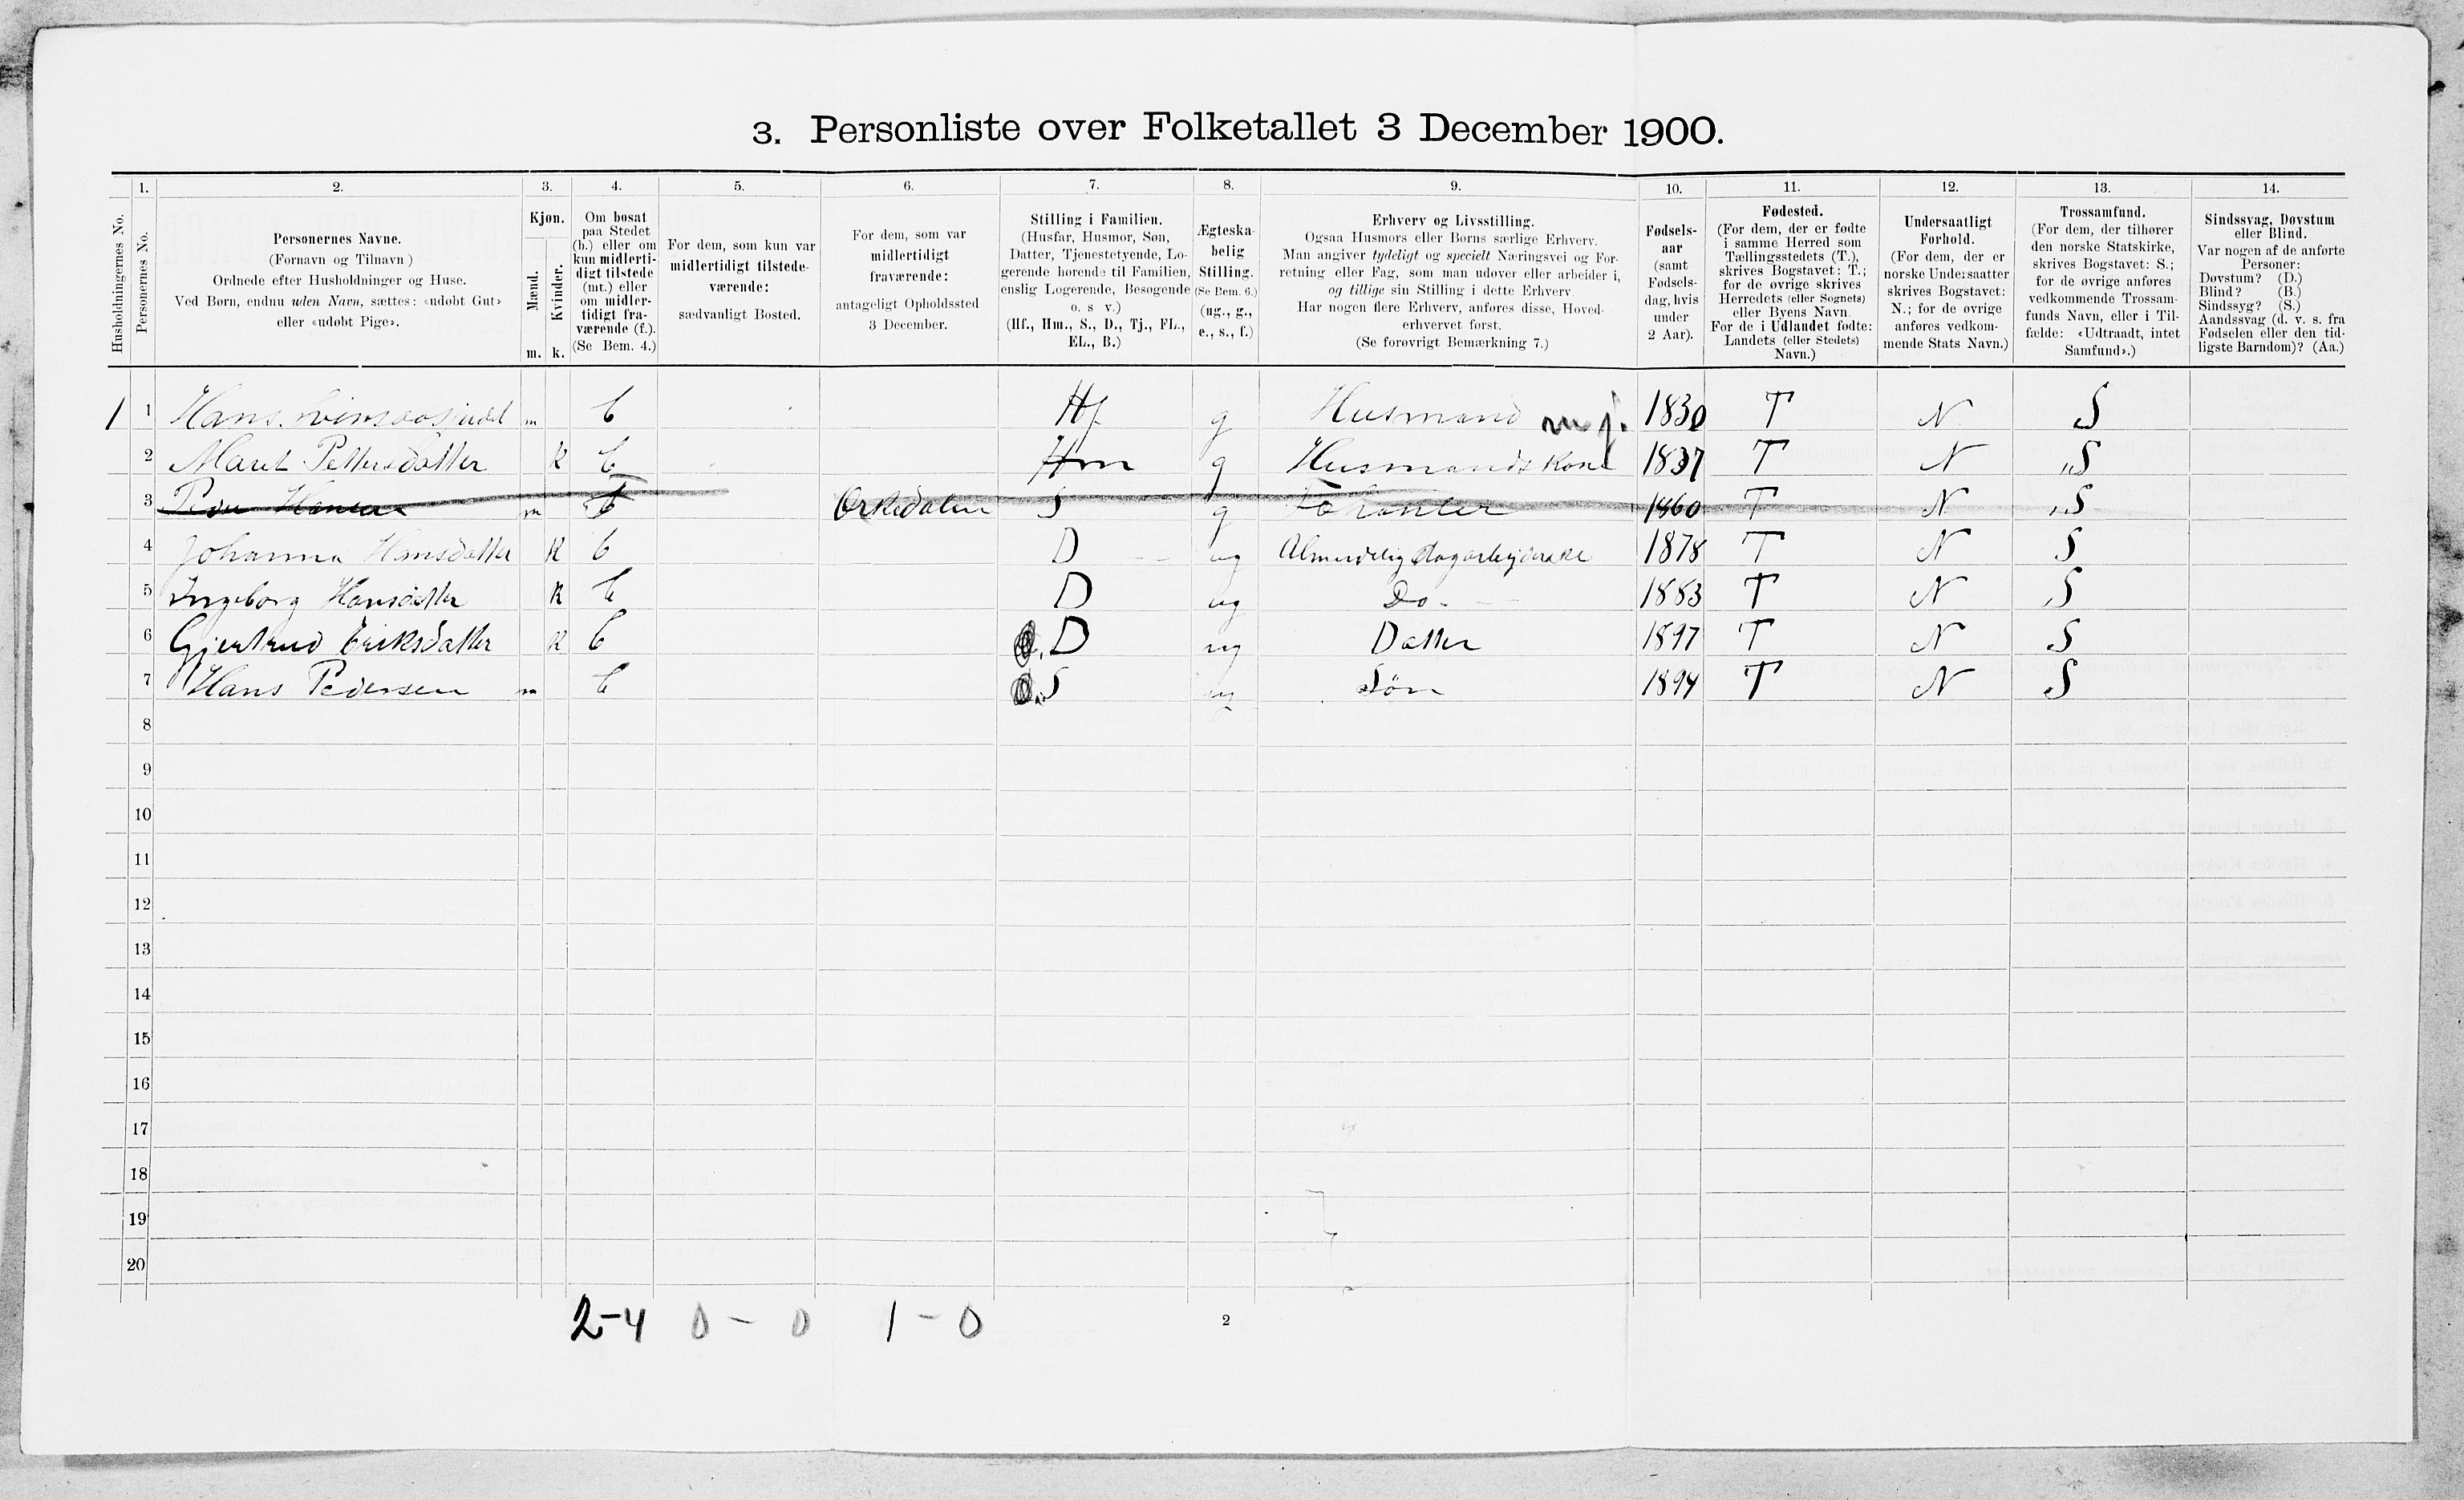 3. Personliste over Folketallet 3 December 1900.
Husholdningernes No.
1.
Personernes No.
2.
Personernes Navne.
(Fornavn og Tilnavn )
Ordnede efter Husholdninger og Huse.
Ved Børn, endnu uden Navn, sættes: «udøbt Gut»
eller «udøbt Pige».
3.
Kjøn.
Mænd.
Kvinder.
m. k.
4.
Om bosat
paa Stedet
(b.) eller om
kun midlerti-
digt tilstede
(mt.) eller
om midler-
tidigt fra-
værende (f.).
(Se Bem. 4.)
5.
For dem, som kun var
midlertidigt tilstede-
værende:
sædvanligt Bosted.
6.
For dem, som var
midlertidigt
fraværende:
antageligt Opholdssted
3 December.
7.
Stilling i Familien.
(Husfar, Husmor, Søn,
Datter, Tjenestetyende, Lo-
gerende hørende til Familien,
enslig Logerende, Besøgende
o. s v.)
(Hf., Hm., S., D., Tj., FL.,
EL., B.)
8.
Ægteska-
belig
Stilling.
(Se Bem. 6.)
(ug., g.,
e., s., f.)
9.
Erhverv og Livsstilling.
Ogsaa Husmors eller Børns særlige Erhverv.
Man angiver tydeligt og specielt Næringsvei og For-
retning eller Fag, som man udøver eller arbeider i,
og tillige sin Stilling i dette Erhverv.
Har nogen flere Erhverv, anføres disse, Hoved-
erhvervet først.
(Se forøvrigt Bemærkning 7.)
10.
Fødsels-
aar
(samt
Fødsels-
dag, hvis
under
2 Aar).
11.
Fødested.
(For dem, der er fødte
i samme Herred som
Tællingsstedets (T.),
skrives Bogstavet: T.;
for de øvrige skrives
Herredets (eller Sognets)
eller Byens Navn.
For de i Udlandet fødte:
Landets (eller Stedets)
Navn.)
12.
Undersaatligt
Forhold.
(For dem, der er
norske Undersaatter
skrives Bogstavet:
N.; for de øvrige
anføres vedkom-
mende Stats Navn.)
13.
Trossamfund.
(For dem, der tilhører
den norske Statskirke,
skrives Bogstavet: S.;
for de øvrige anføres
vedkommende Trossam-
funds Navn, eller i Til-
fælde: «Udtraadt, intet
Samfund».)
14.
Sindssvag, Døvstum
eller Blind.
Var nogen af de anførte
Personer:
Døvstum? (D.)
Blind? (B.)
Sindssyg? (S.)
Aandssvag (d. v. s. fra
Fødselen eller den tid-
ligste Barndom)? (Aa.)
1 1 Hans m b Hf g Husmand m j. 1830 T N S
2 Maret Pettersdatter k b Hm g Husmands Kone 1837 T N S
3 Peder Hansen m Orkedalen S g 1860 T N S
4 Johanna Hansdatter k b D ug Almindelig Dagarbejderske 1878 T N S
5 Ingeborg Hansdatter k b D ug Do. 1883 T N S
6 Gjertrud Eriksdatter k b D ug Datter 1897 T N S
7 Hans Pedersen m b S ug Søn 1894 T N S
8
9
10
11
12
13
14
15
16
17
18
19
20
2-4 0 - 0 1 - 0
2